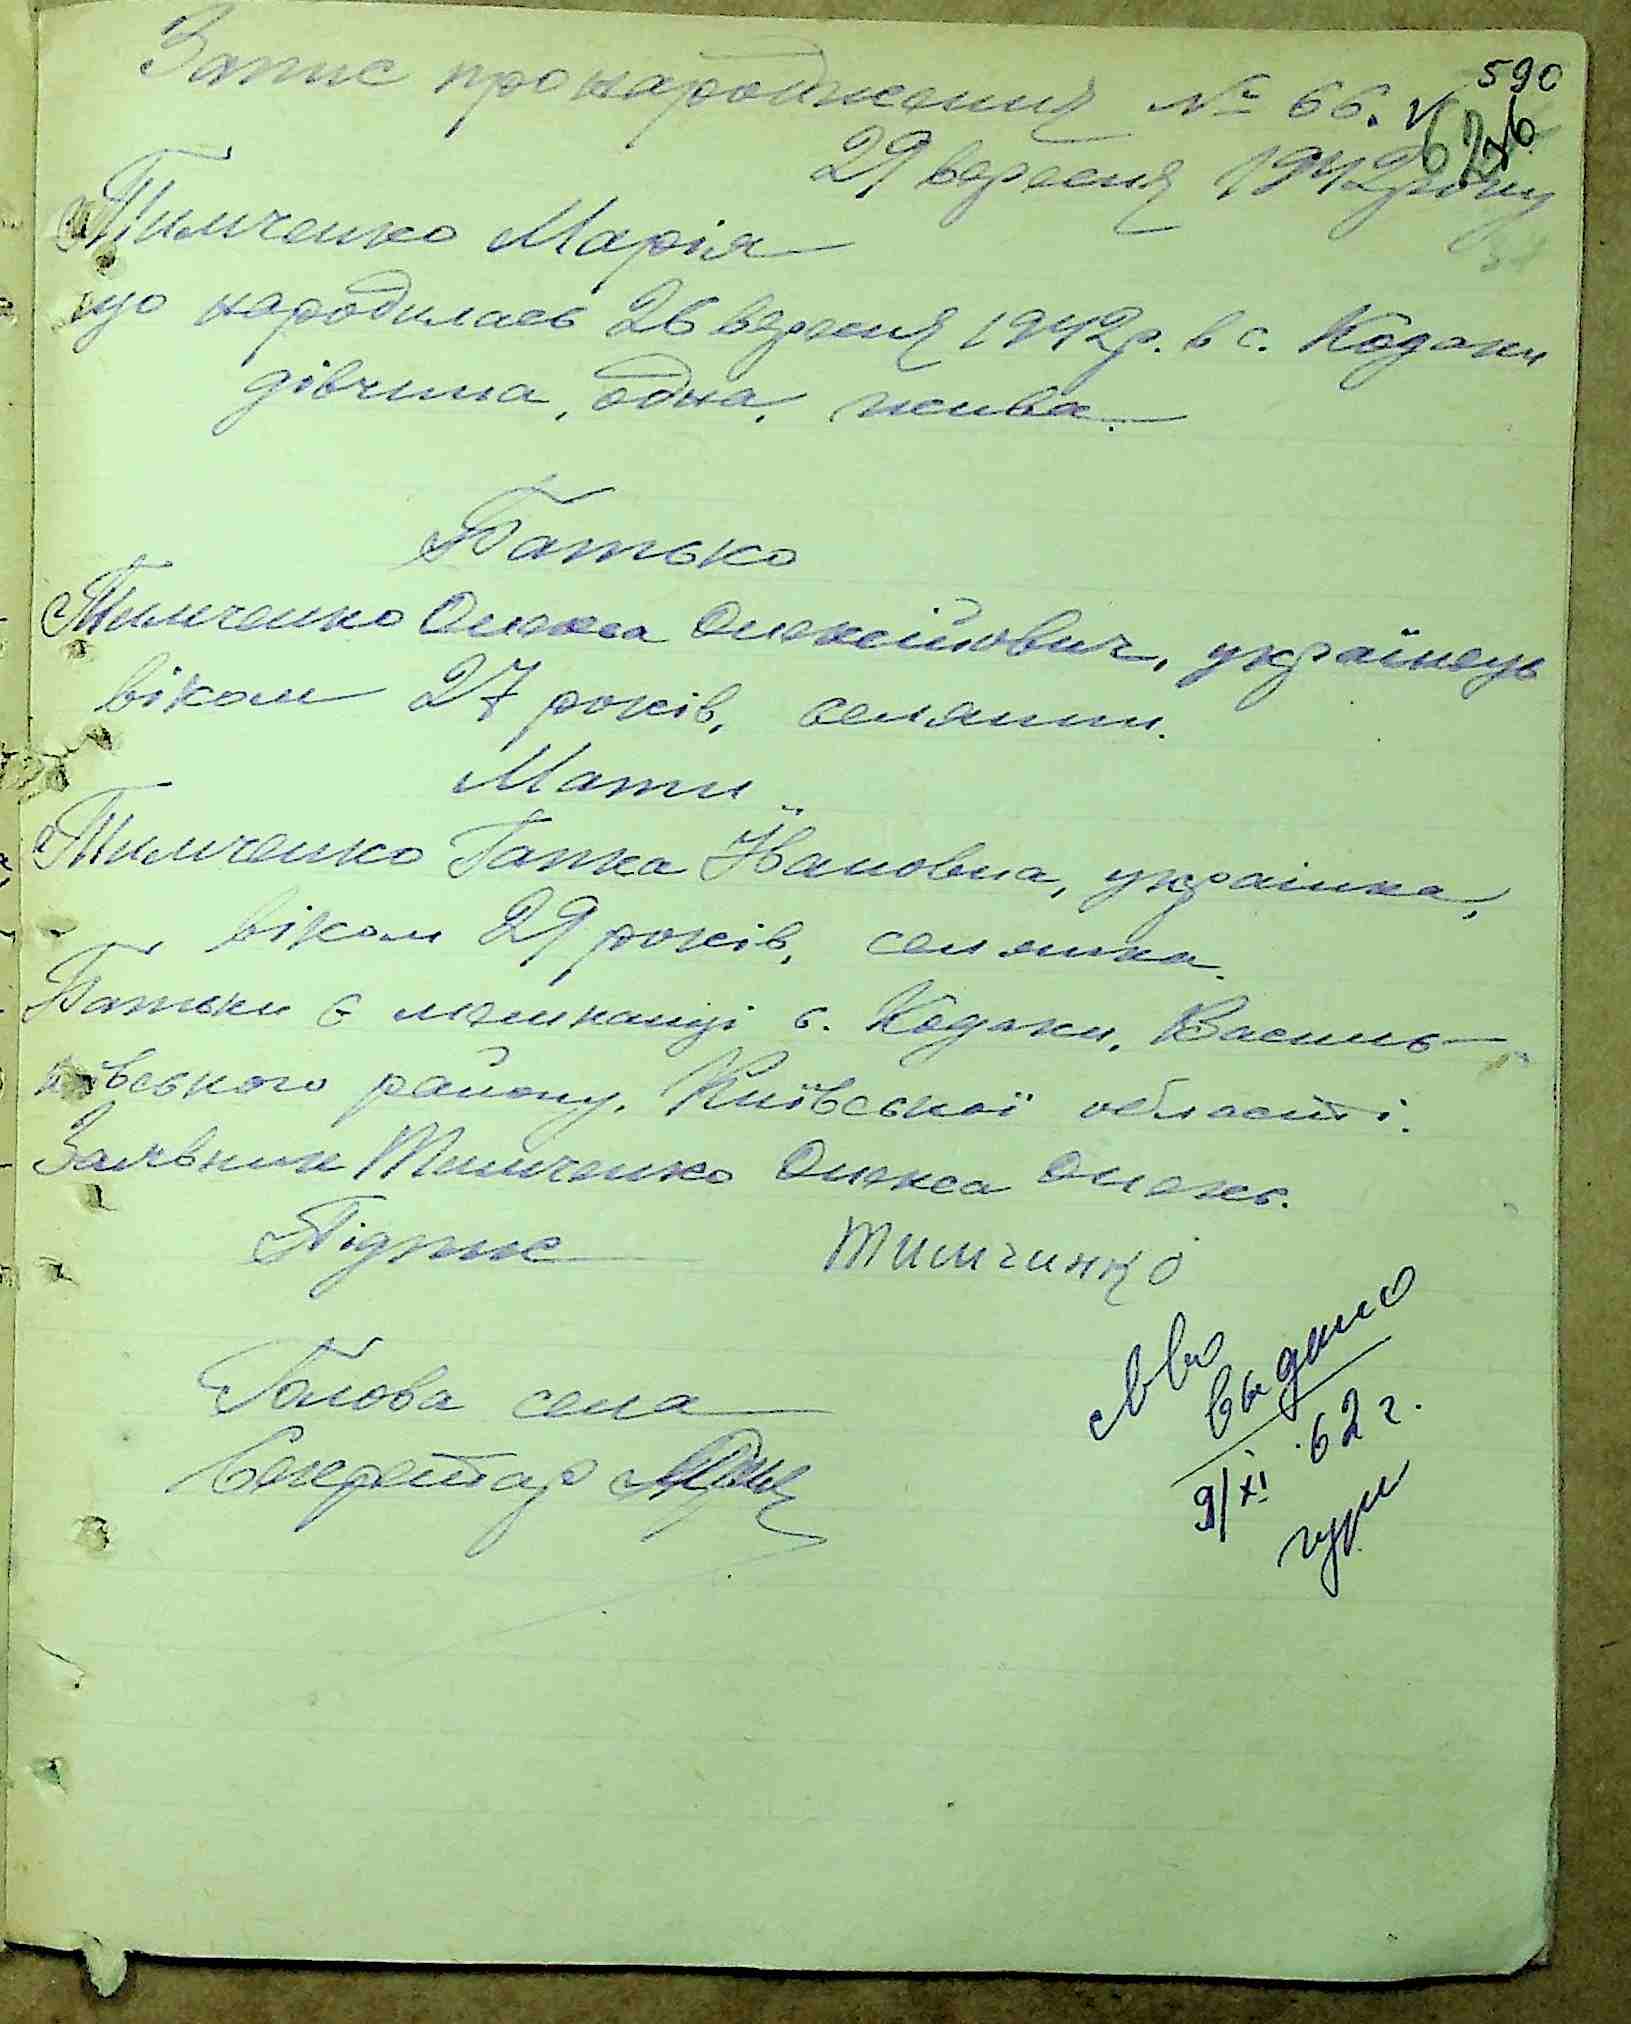 590
Запис про народження № 66.
29 вересня 1942 року
Тимченко Марія
що народилась 26 вересня 1942 р. в с. Кодаки
дівчина, одна, жива.
Батько
Тимченко Олекса Олексійович, українець
віком 27 років, селянин.
Мати
Тимченко Гапка Йвановна, украінка,
віком 29 років, селянка.
Батьки є мешканці с. Кодаки, Василь-
ківського району, Київської області.
Заявник Тимченко Олекса Олекс.
Підпис Тимчинко
Голова села
Секретар
выдано
9/XI 62 г.